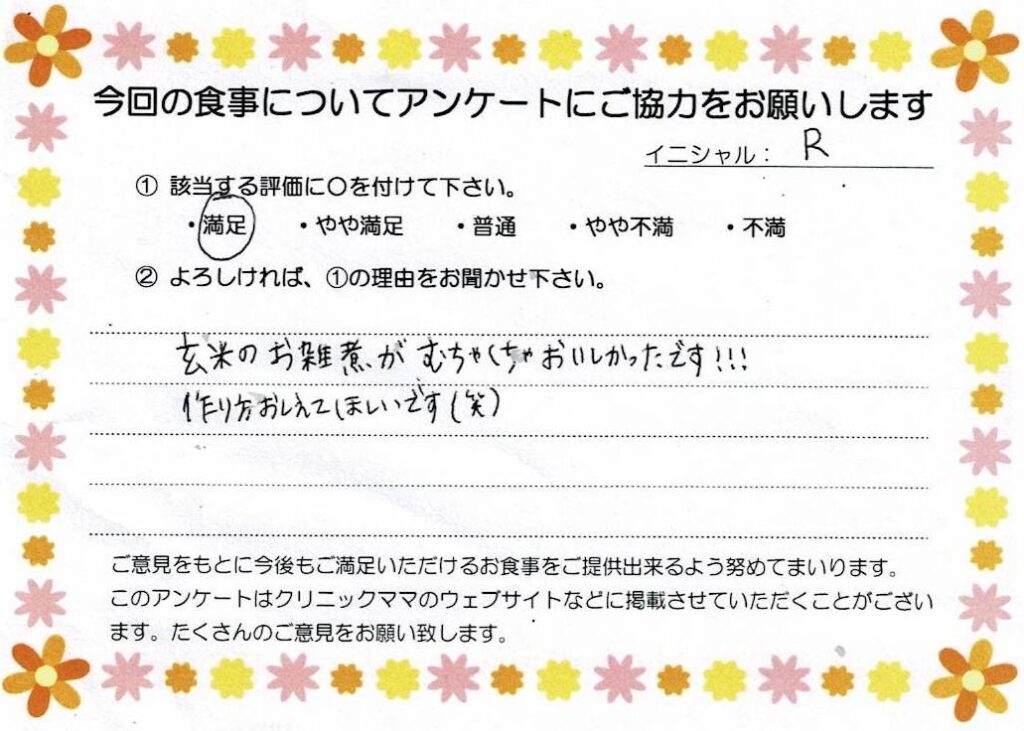 今回の食事についてアンケートにご協力をお願いします
イニシャル： R
① 該当する評価に〇を付けて下さい。
・満足 ・やや満足 ・普通 ・やや不満 ・不満
② よろしければ、①の理由をお聞かせ下さい。
玄米のお雑煮がむちゃくちゃおいしかったです!!!
作り方おしえてほしいです(笑)
ご意見をもとに今後もご満足いただけるお食事をご提供出来るよう努めてまいります。
このアンケートはクリニックママのウェブサイトなどに掲載させていただくことがござい
ます。たくさんのご意見をお願い致します。